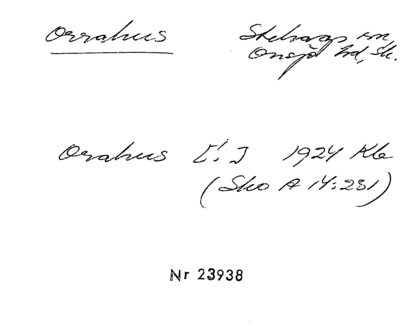 Orrahus Stehags sn,
Onsjö hd, Sk.
Orahus [!] 1924 Kle
(Sko A 14:231)
Nr 23938